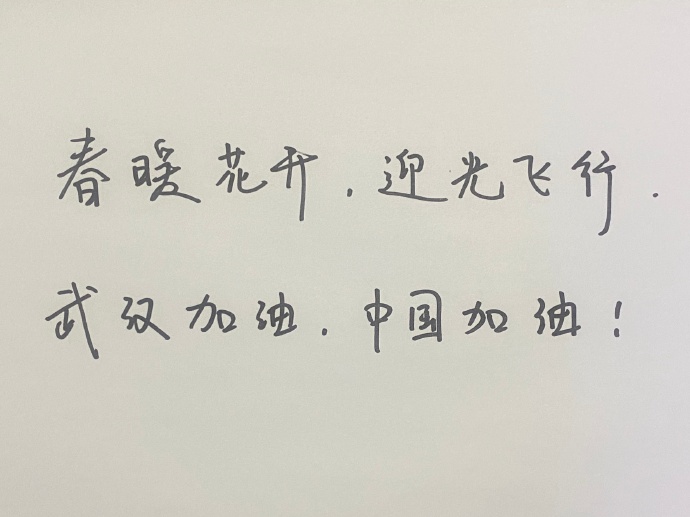 春暖花开，迎光飞行.
武汉加油，中国加油！